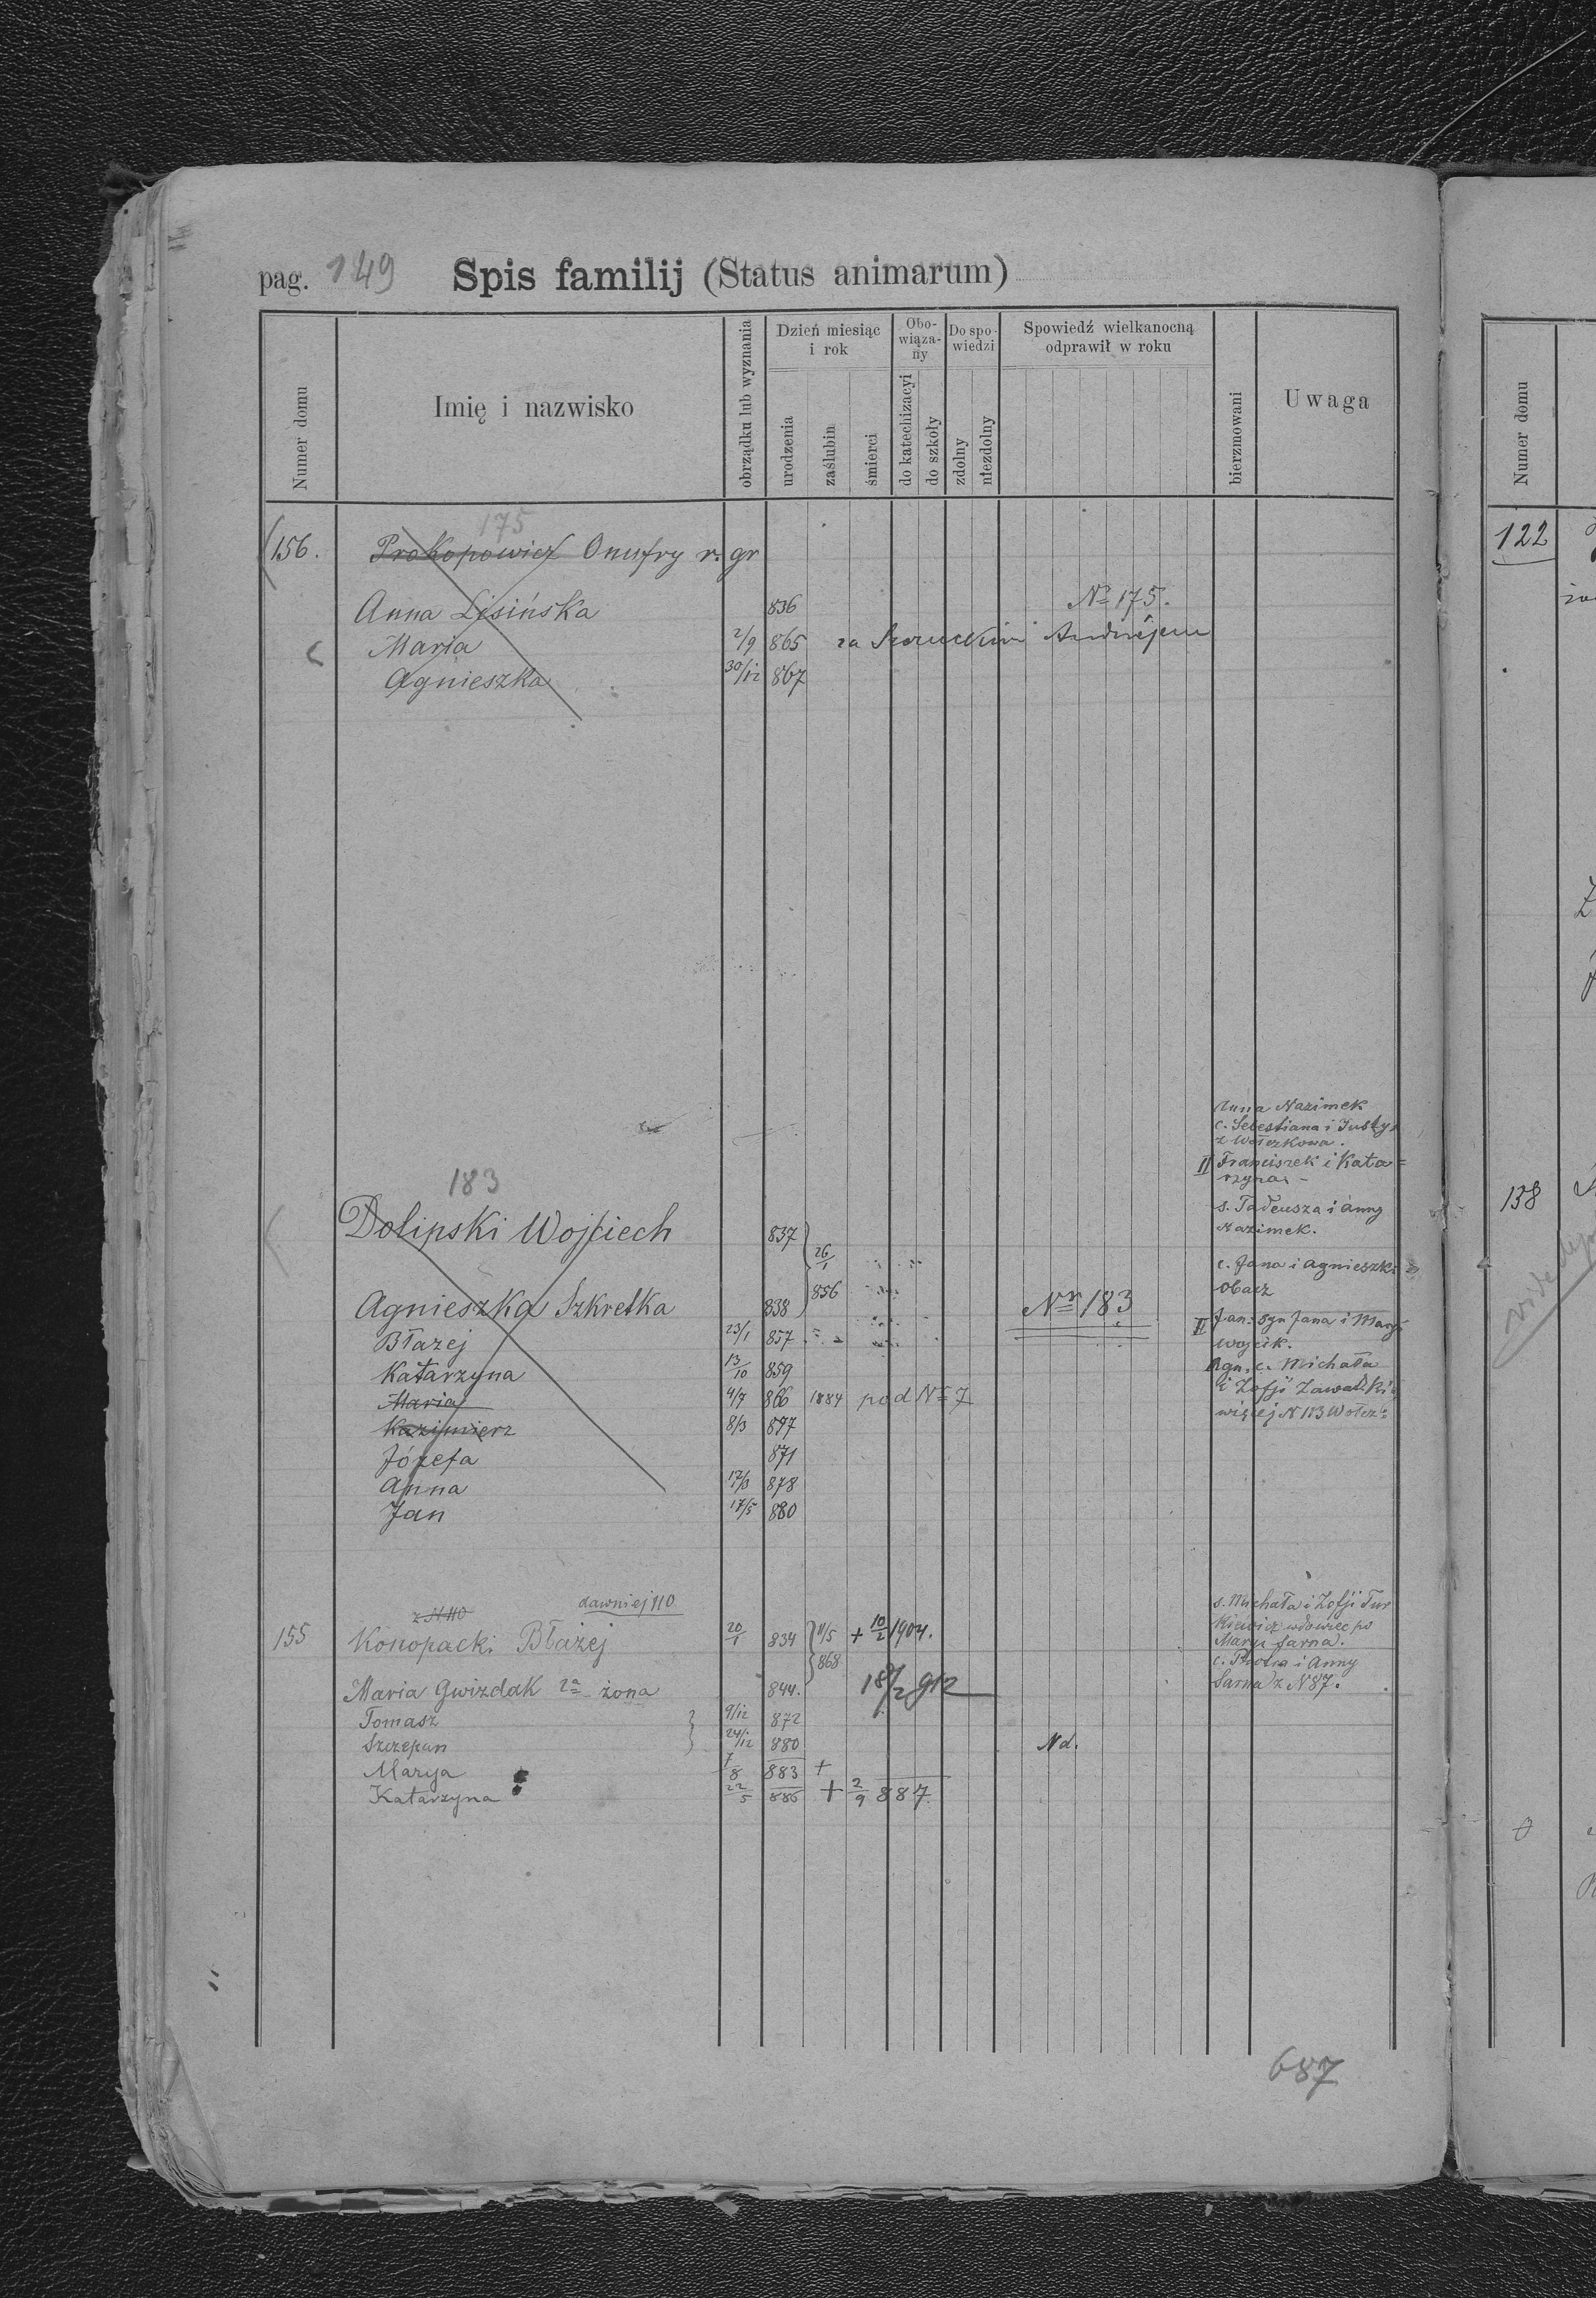 pag. 149 Spis familij (Status animarum)
Numer domu
Imię i nazwisko
obrządku lub wyznania
Dzień miesiąc i rok
urodzenia
zaślubin
śmierci
Obo-wiąza-ny
do katechizacyi
do szkoły
Do spo-wiedzi
zdolny
niezdolny
Spowiedź wielkanocną odprawił w roku
bierzmowani
Uwaga
Numer domu
175
156. Prokopowicz Onufry r. gr
Anna Lisińska 836 No 175.
Maria 2/9 865 za Andrzejem
Agnieszka 30/12 867
Anna Nazimek
c. Sebestiana i Justy
z Wołczkowa.
II Franciszek i Kata=
rzyna -
183
s. Tadeusza i Anny
Nazimek.
Dolipski Wojciech 837 26/1 856
c. Jana i Agnieszki
Obacz
Agnieszka Szkretka 838 Nr 183
II Jan. syn Jana i Mary
Wojcik.
Błażej 23/1 857
Katarzyna 13/10 859
Agn. c. Michała
i Zofji Zawadzki
Maria 4/7 866 1884 pod No 7
więcej N 113 Wołcz:
Kazimierz 8/3 877
Józefa 871
Anna 12/3 878
Jan 17/5 880
z N 110 dawniej 110
155 Konopacki Błażej 20/1 834 11/5 868 + 10/2 1904.
s. Michała i Zofji Tur
kiewicz wdowiec po
Maryi Sarna.
c. Piotra i Anny
Sarna z N 87.
Maria Gwizdak 2a żona 844. 18/2 912
Tomasz 9/12 872
Szczepan 24/12 880 Nd.
Marya 7/8 883 +
Katarzyna 22/5 886 + 2/9 887
687
122
138